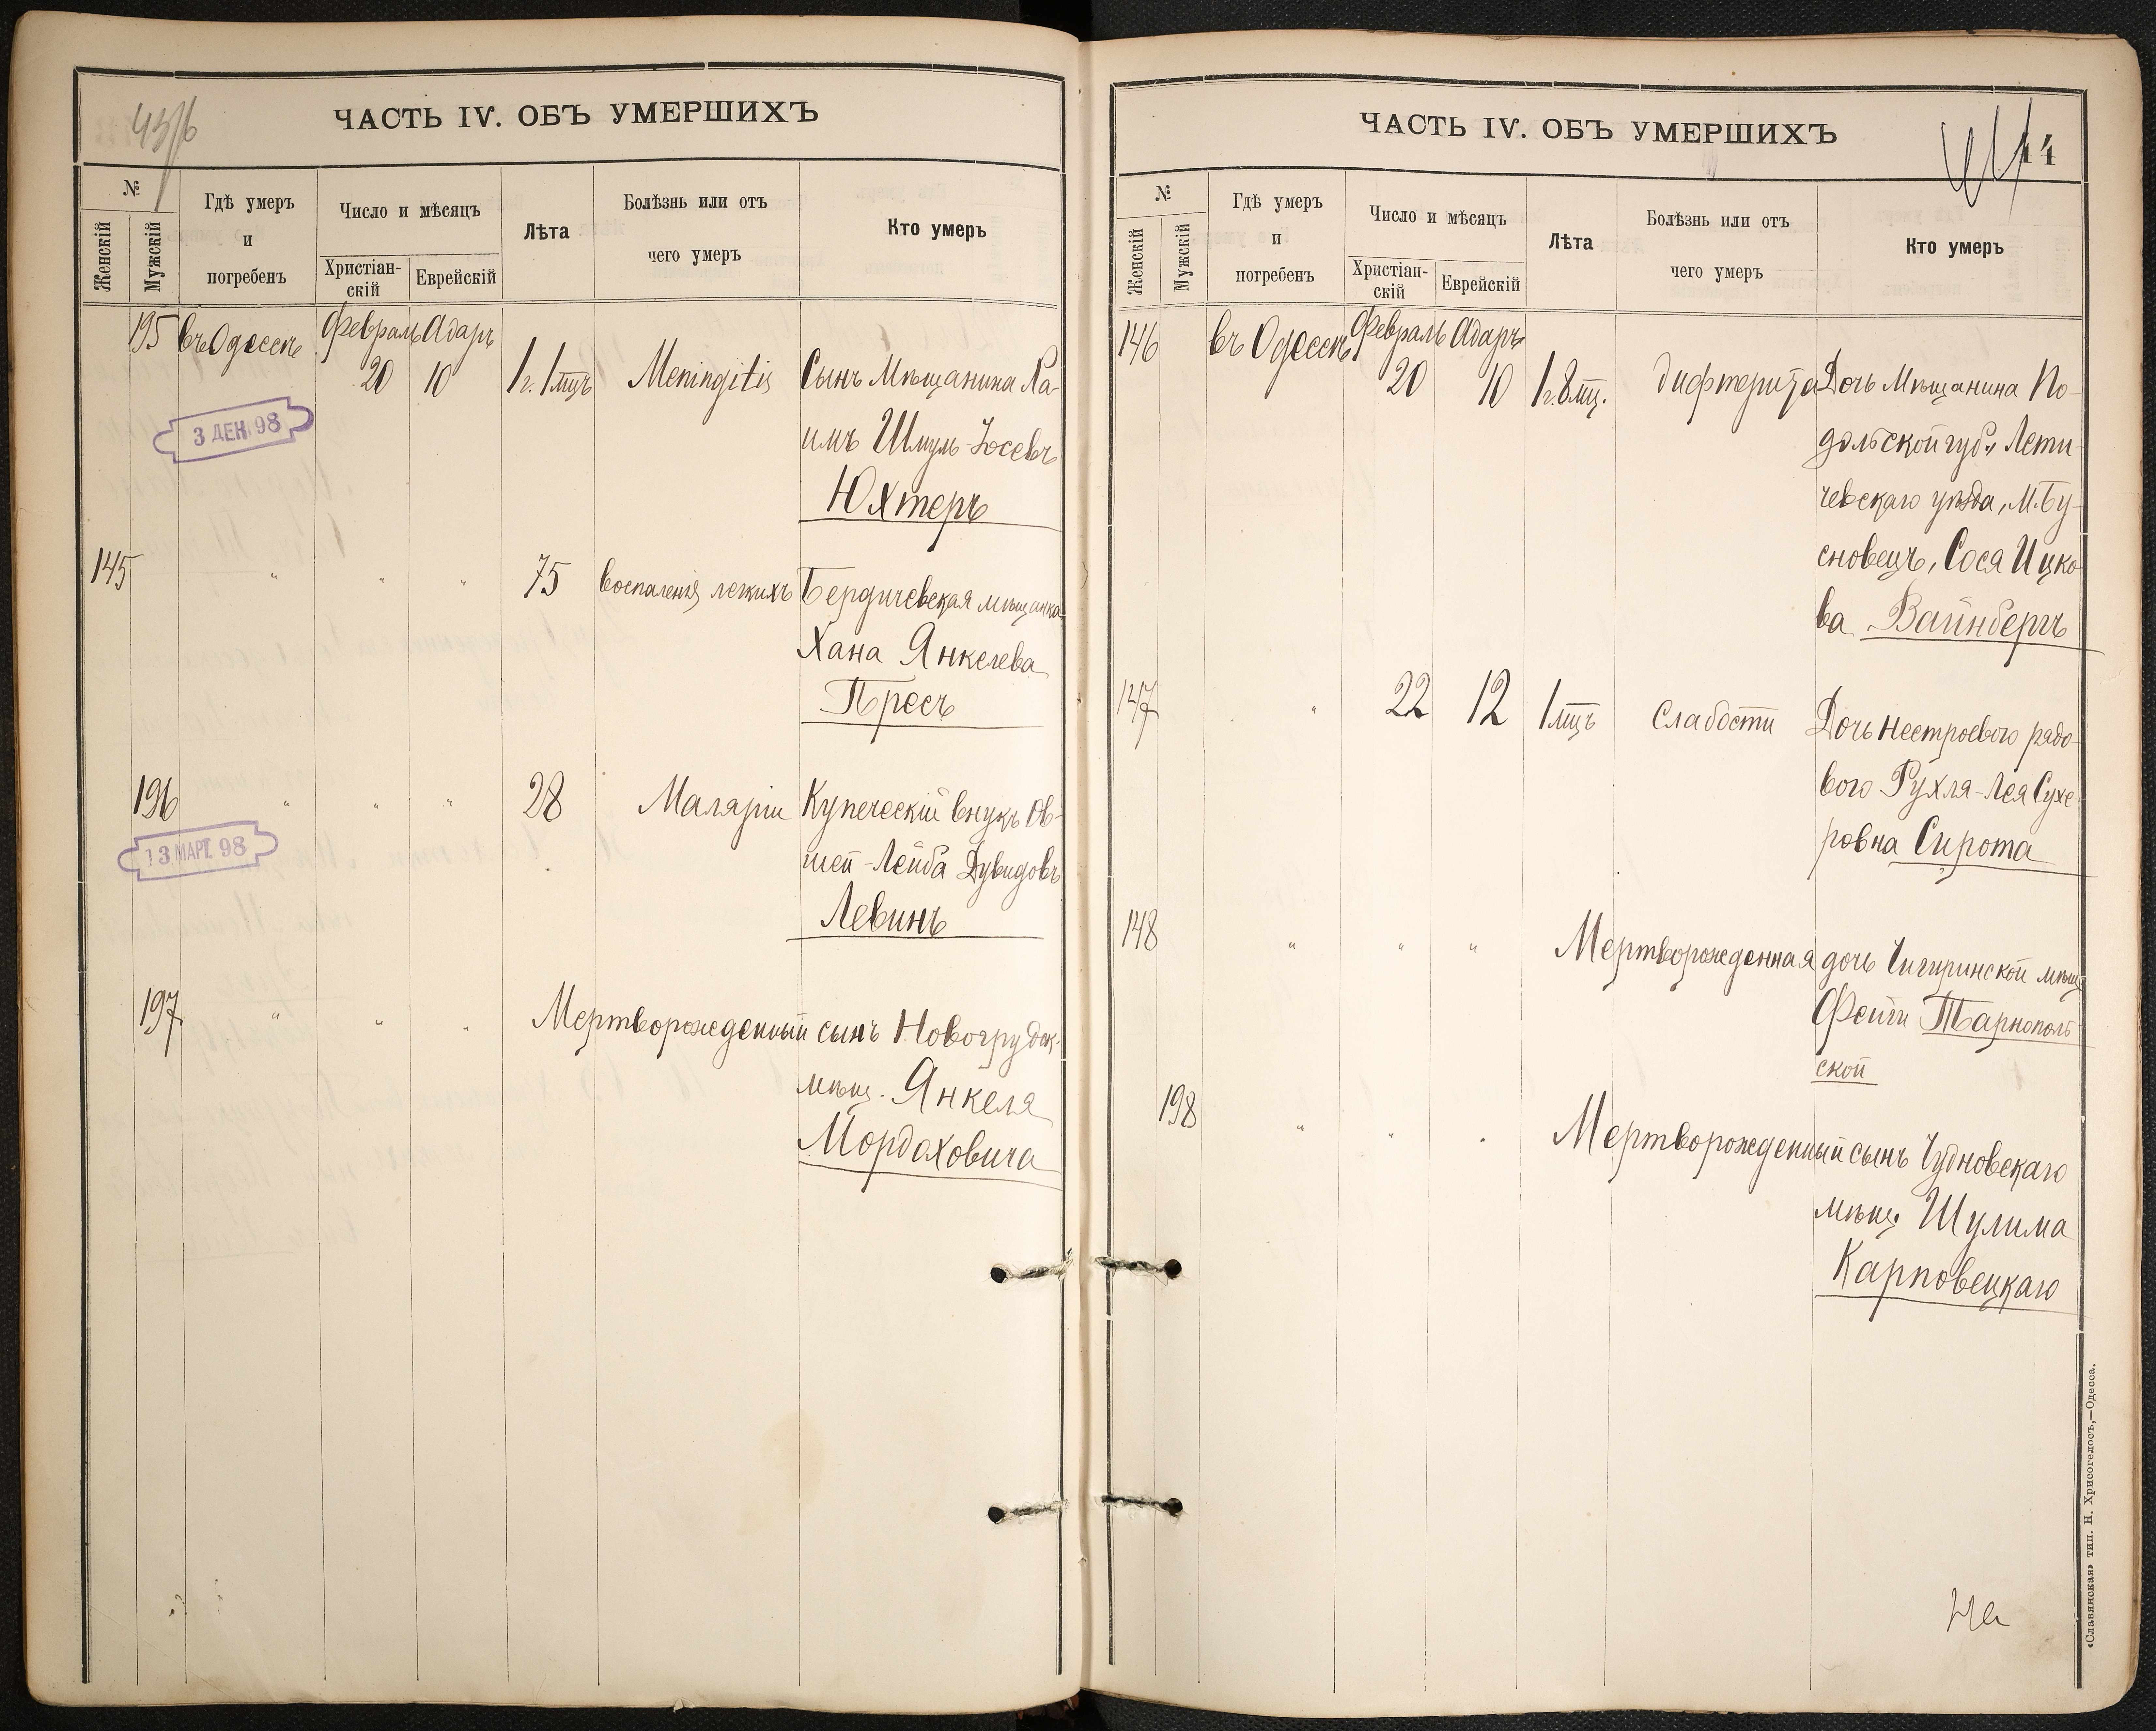 43/б
ЧАСТЬ IV. ОБЪ УМЕРШИХЪ
№
Женскій
Мужскій
Гдѣ умеръ
и
погребенъ
Число и мѣсяцъ
Христіан-
скій
Еврейскій
Лѣта
Болѣзнь или отъ
чего умеръ
Кто умеръ
195 въ Одессѣ Февраль Адаръ
20 10 1 г. 1 мцъ Meningitis Сынъ Мѣщанина Ха-
имъ Шмуль-Іосевъ
Юхтеръ
3 ДЕК 98
145 " " " 75 воспаленія легкихъ Бердичевская мѣщанка
Хана Янкелева
Пресъ
196 " " " 28 Маляріи Купеческій внукъ Ов-
шей-Лейба Дувидовъ
Левинъ
13 МАРТ. 98
197 " " " Мертворожденный сынъ Новогрудск.
мѣщ. Янкеля
Мордоховича
ЧАСТЬ IV. ОБЪ УМЕРШИХЪ
44
№
Женскій
Мужскій
Гдѣ умеръ
и
погребенъ
Число и мѣсяцъ
Христіан-
скій
Еврейскій
Лѣта
Болѣзнь или отъ
чего умеръ
Кто умеръ
146 въ Одессѣ Февраль Адаръ
20 10 1 г. 8 мц. дифтерита Дочь Мѣщанина По-
дольской губ., Лети-
чевскаго уѣзда, М. Бу-
сновецъ, Сося Ицко-
ва Вайнбергъ
147 " 22 12 1 мцъ Слабости Дочь нестроевого рядо-
вого Рухля-Лея Сухе-
ровна Сирота
148 " " " Мертворожденная дочь Чигиринской мѣщ.
Фейги Тарнополь-
ской
198 " " " Мертворожденный сынъ Чудновскаго
мѣщ. Шулима
Карповецкаго
«Славянская» тип. Н. Хрисогелосъ,—Одесса.